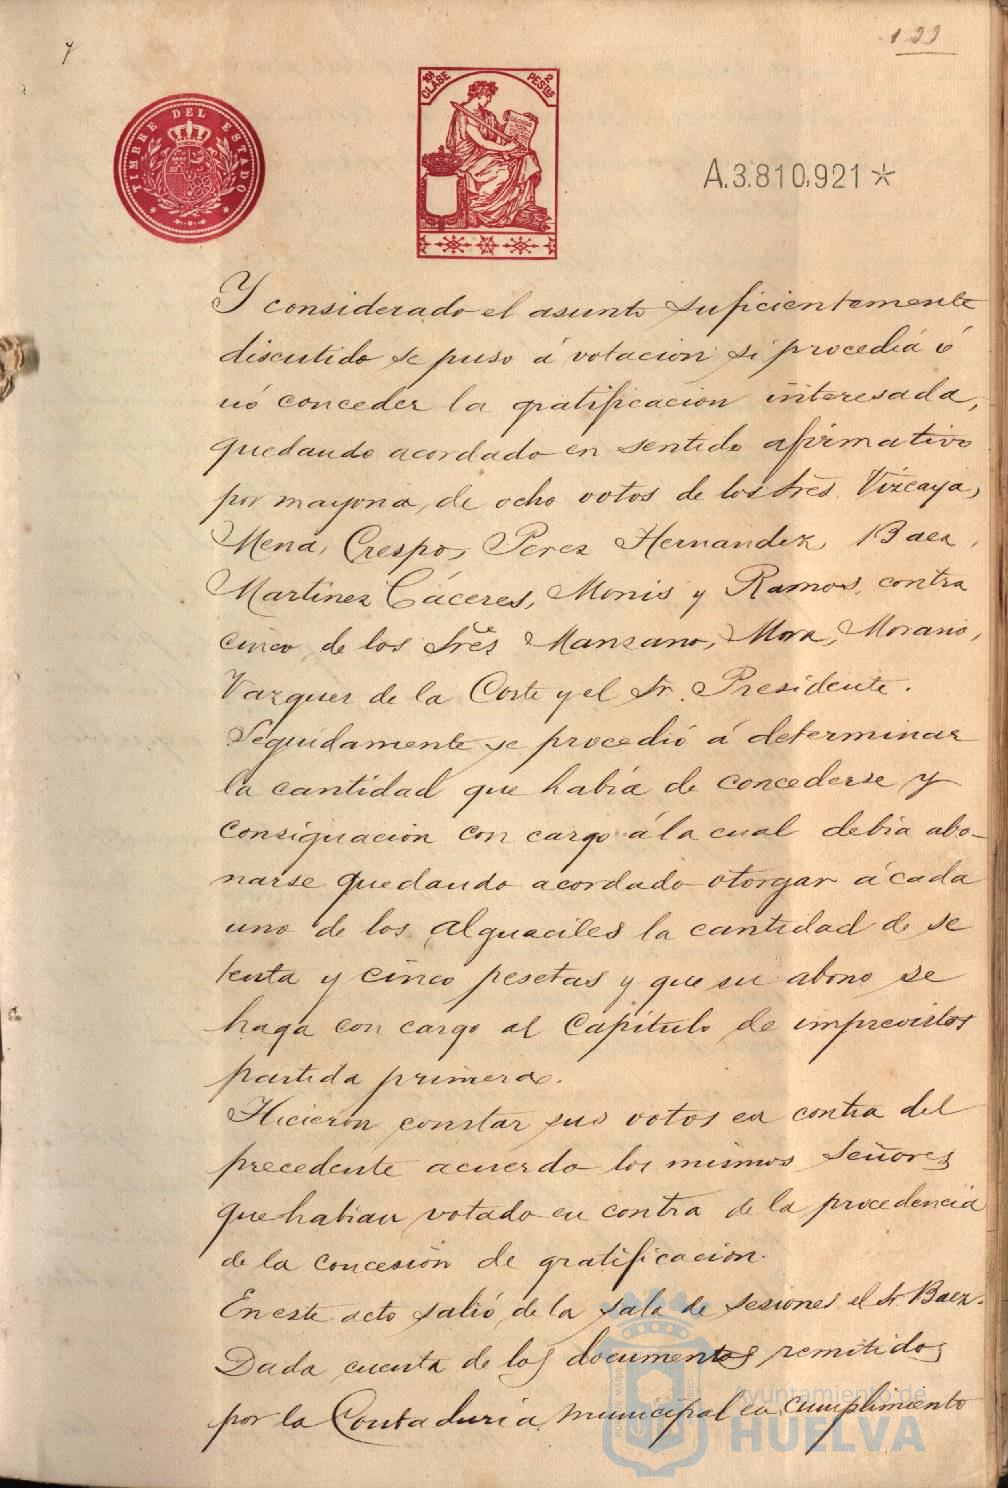 7
133
TIMBRE DEL ESTADO
10ª CLASE
2 PESTAS
A.3.810,921*
Y considerado el asunto suficientemente
discutido se puso á votacion si procediá ó
nó conceder la gratificacion interesada,
quedando acordado en sentido afirmativo
por mayoria, de ocho votos de los Sres. Vizcaya,
Mena, Crespo, Perez Hernandez, Baez,
Martinez Cáceres, Monis y Ramos, contra
cinco de los Sres Manzano, Mora, Morano,
Vazquez de la Corte y el Sr. Presidente.
Seguidamente se procedió á determinar
la cantidad que habia de concederse y
consignacion con cargo á la cual debia abo-
narse quedando acordado otorgar á cada
uno de los alguaciles la cantidad de se
tenta y cinco pesetas y que su abono se
haga con cargo al Capitulo de imprevistos
partida primera.
Hicieron constar sus votos en contra del
precedente acuerdo los mismos Señores
que habian votado en contra de la procedencia
de la concesión de gratificacion.
En este acto salió de la sala de sesiones el Sr. Baez.
Dada cuenta de los documentos remitidos
por la Contaduria municipal en cumplimiento
Ayuntamiento de
HUELVA